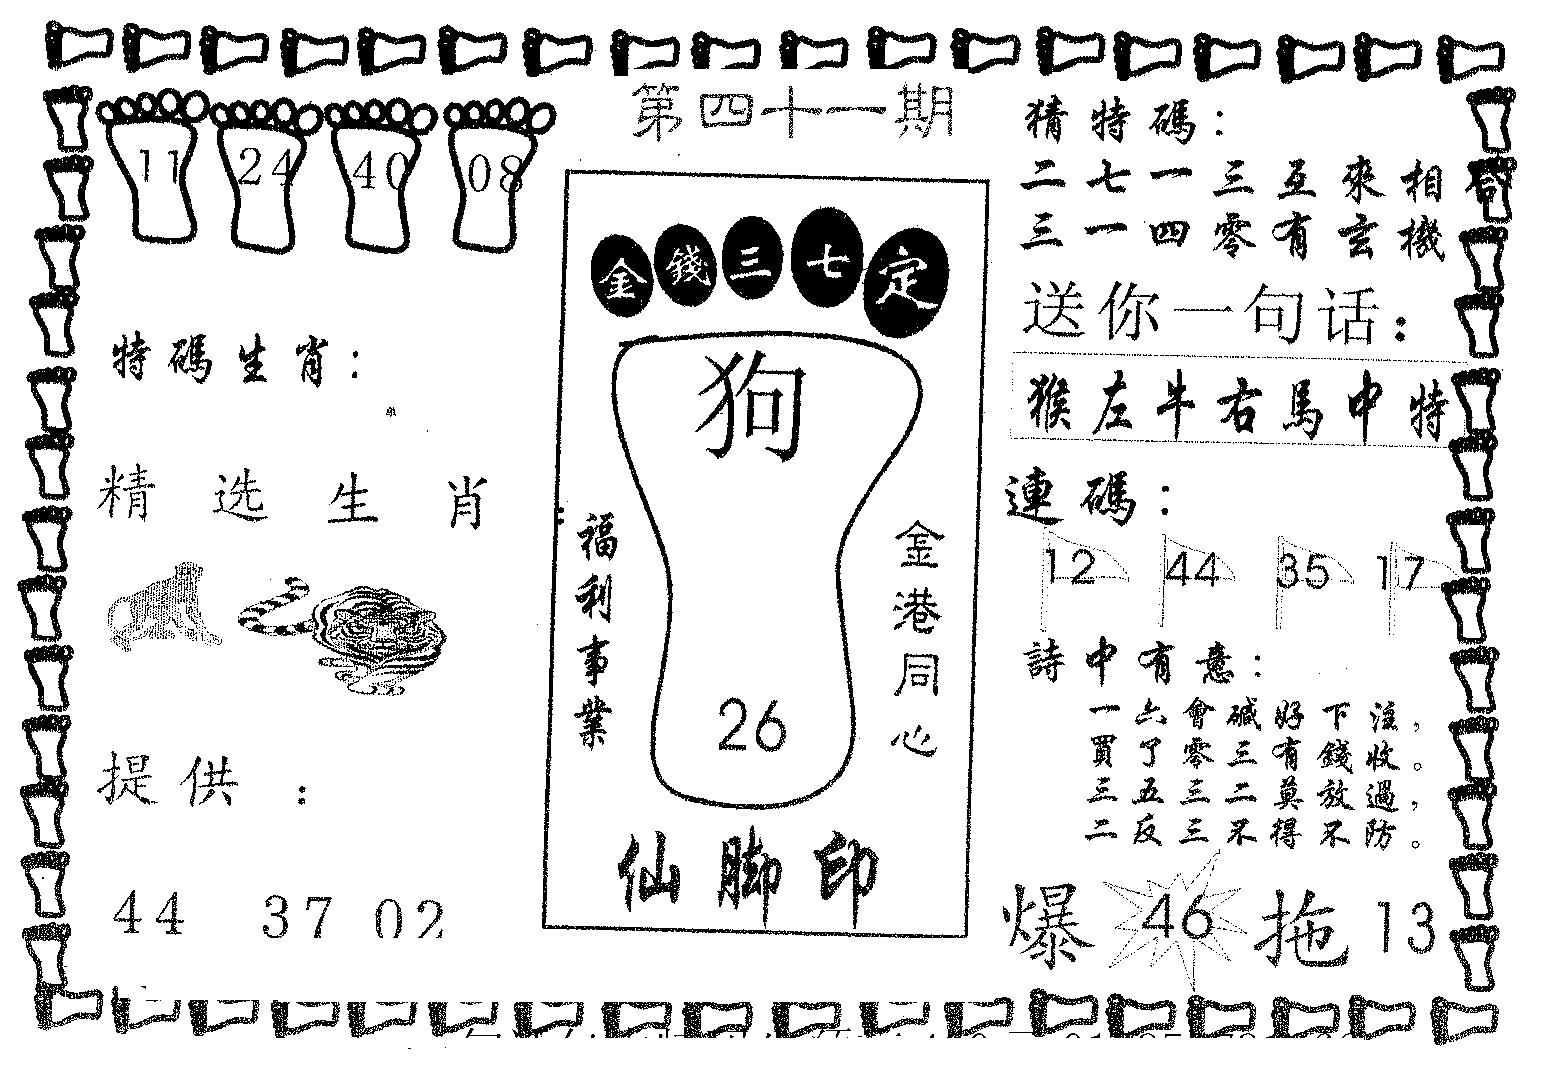 第四十一期
11 24 40 08
特碼生肖：
单
精选生肖：
提供：
44 37 02
金錢三七定
狗
福利事業
金港同心
26
仙脚印
猜特碼：
二七一三互來相
三一四零有玄機
送你一句话：
猴左牛右馬中特
連碼：
12 44 35 17
詩中有意：
一六會碱好下注，
買了零三有錢收。
三五三二莫放過，
二反三不得不防。
爆 46 拖 13